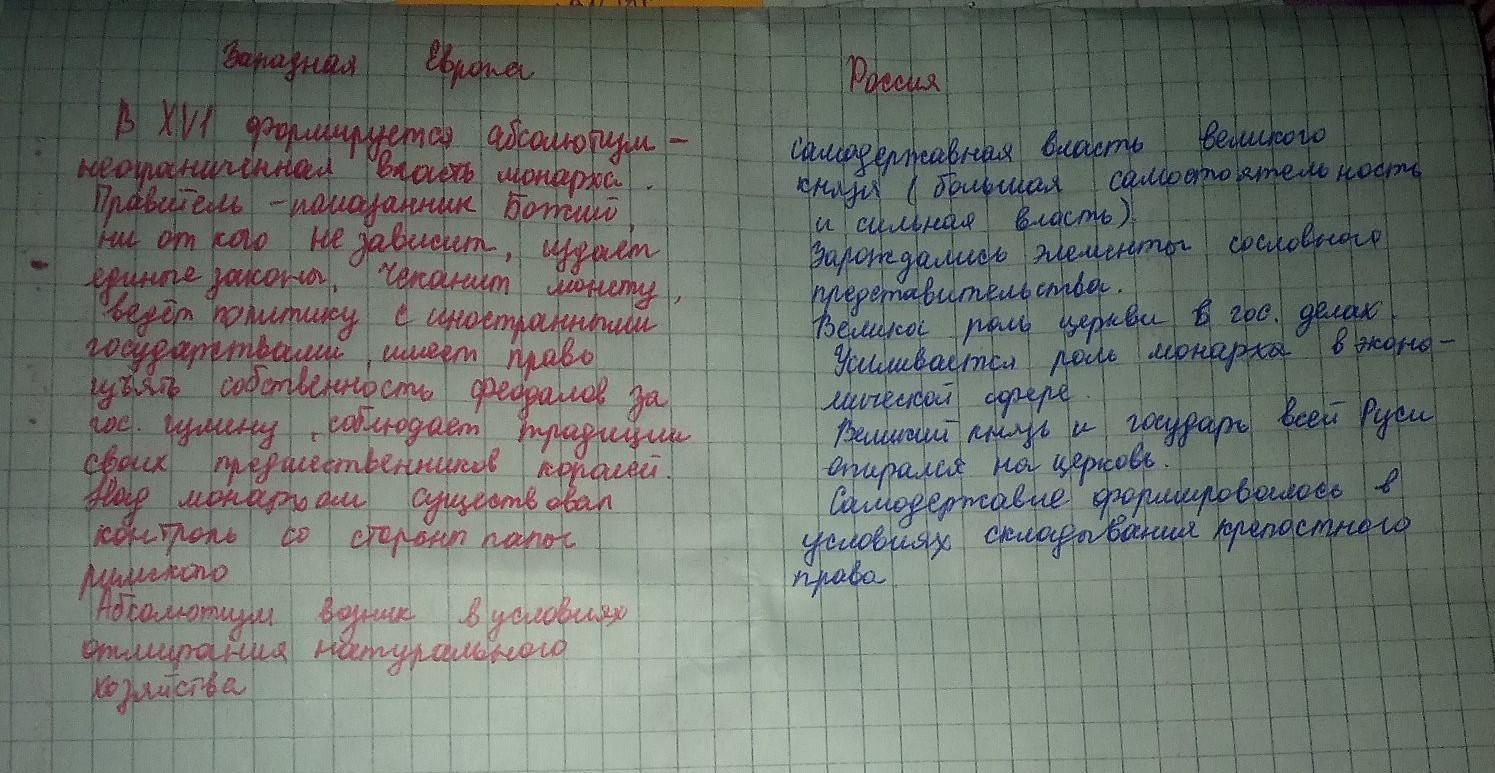 Западная Европа
В XVI формируется абсолютизм –
неограниченная власть монарха.
Правитель – помазанник Божий,
ни от кого не зависит, издаёт
единые законы, чеканит монету,
ведёт политику с иностранными
государствами, имеет право
изъять собственность феодалов за
гос. измену, соблюдает традиции
своих предшественников королей.
Над монархом существовал
контроль со сторонт папы
римского
Абсолютизм возник в условиях
отмирания натурального
хозяйства
Россия
самодержавная власть великого
князя (большая самостоятельность
и сильная власть)
Зарождались элементы сословного
представительства.
Велика роль церкви в гос. делах.
Усиливается роль монарха в эконо-
мической сфере.
Великий князь и государь всей Руси
опирался на церковь.
Самодержавие формировалось в
условиях складывания крепостного
права